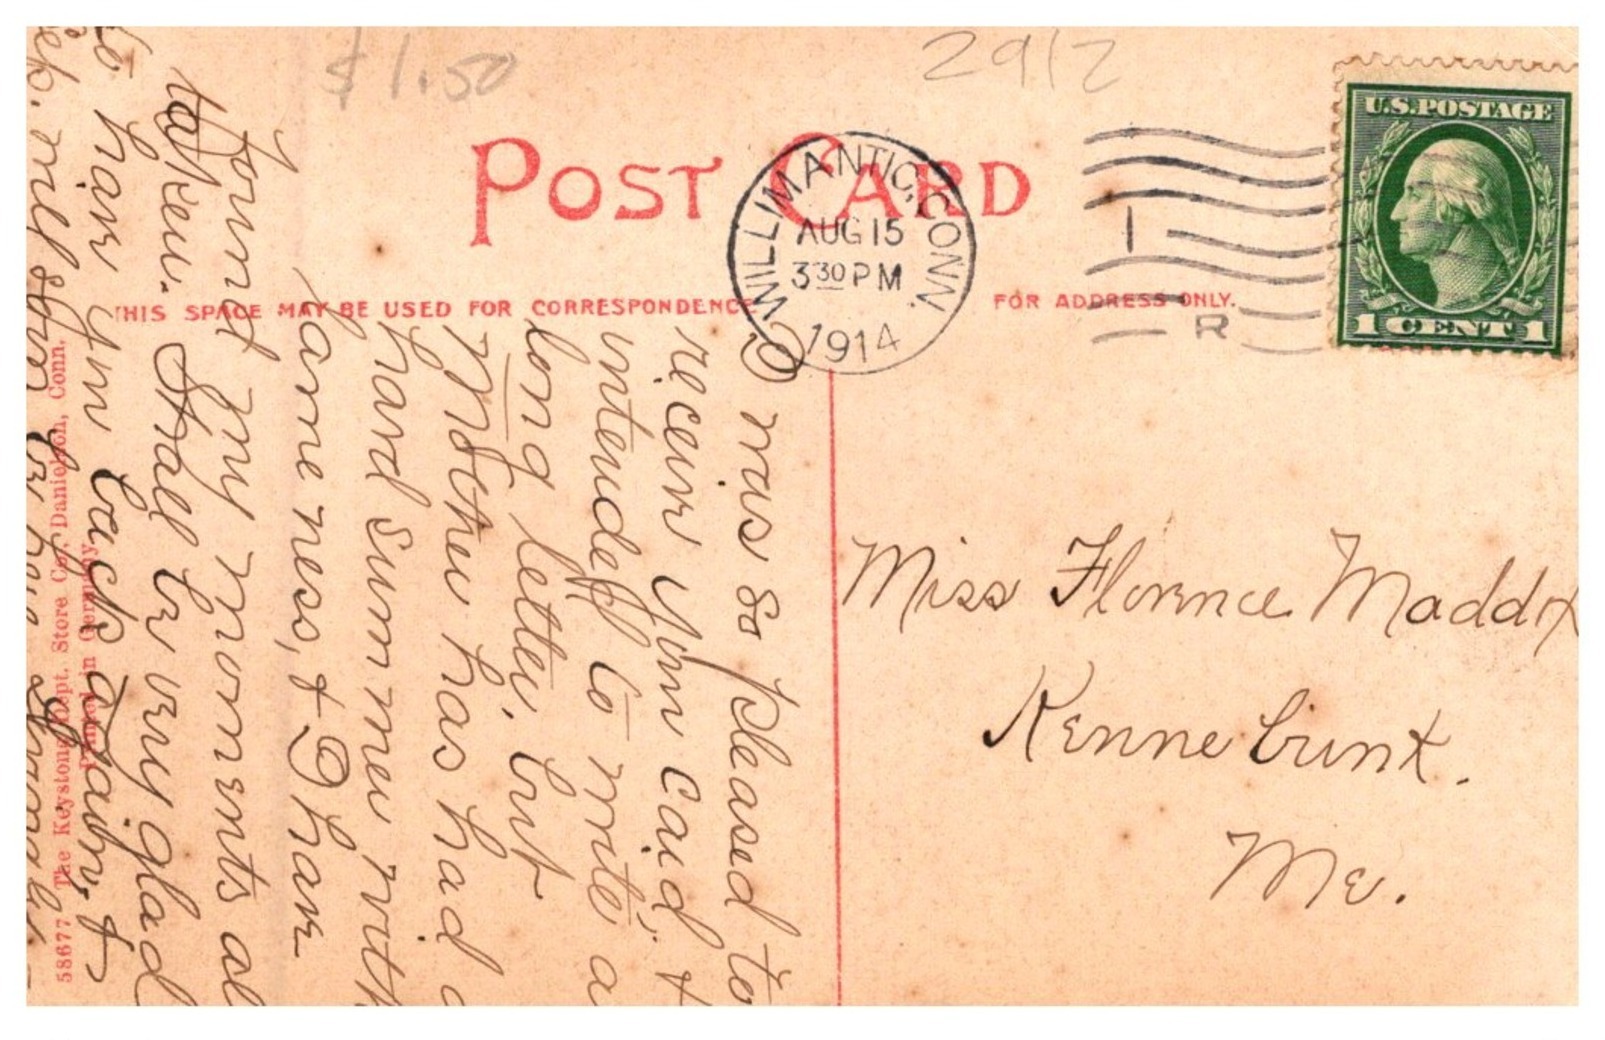 $1.50
2912
U.S.POSTAGE
1 CENT 1
POST CARD
WILLIMANTIC, CONN.
AUG 15
3 30 PM
1914
1
R
THIS SPACE MAY BE USED FOR CORRESPONDENCE
FOR ADDRESS ONLY.
I was so pleased to
receive your card, &
intended to write a
long letter, but
Mother has had a
hard summer with
lameness, & I have
found my moments al
taken. Shall be very glad
to have you back again, &
Miss Florence Maddox
Kennebunk.
Me.
58677 The Keystone Dept. Store Co., Danielson, Conn.
Printed in Germany